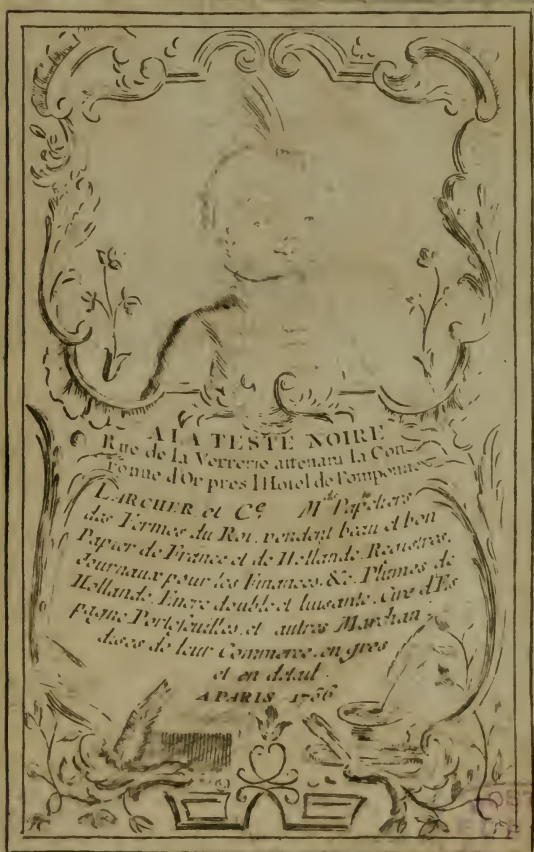 A LA TESTE NOIRE
Rue de la Verrerie attenant la Cou-
ronne d'Or pres l'Hotel de Pomponne
LARCHER et Cᵉ. Mds Papetiers
des Fermes du Roi, vendent beau et bon
Papier de France et de Hollande, Registres,
Journaux pour les Finances, &c. Plumes de
Hollande, Encre double et luisante, Cire d'Es
pagne, Portefeuilles, et autres Marchan
dises de leur Commerce, en gros
et en détail.
A PARIS